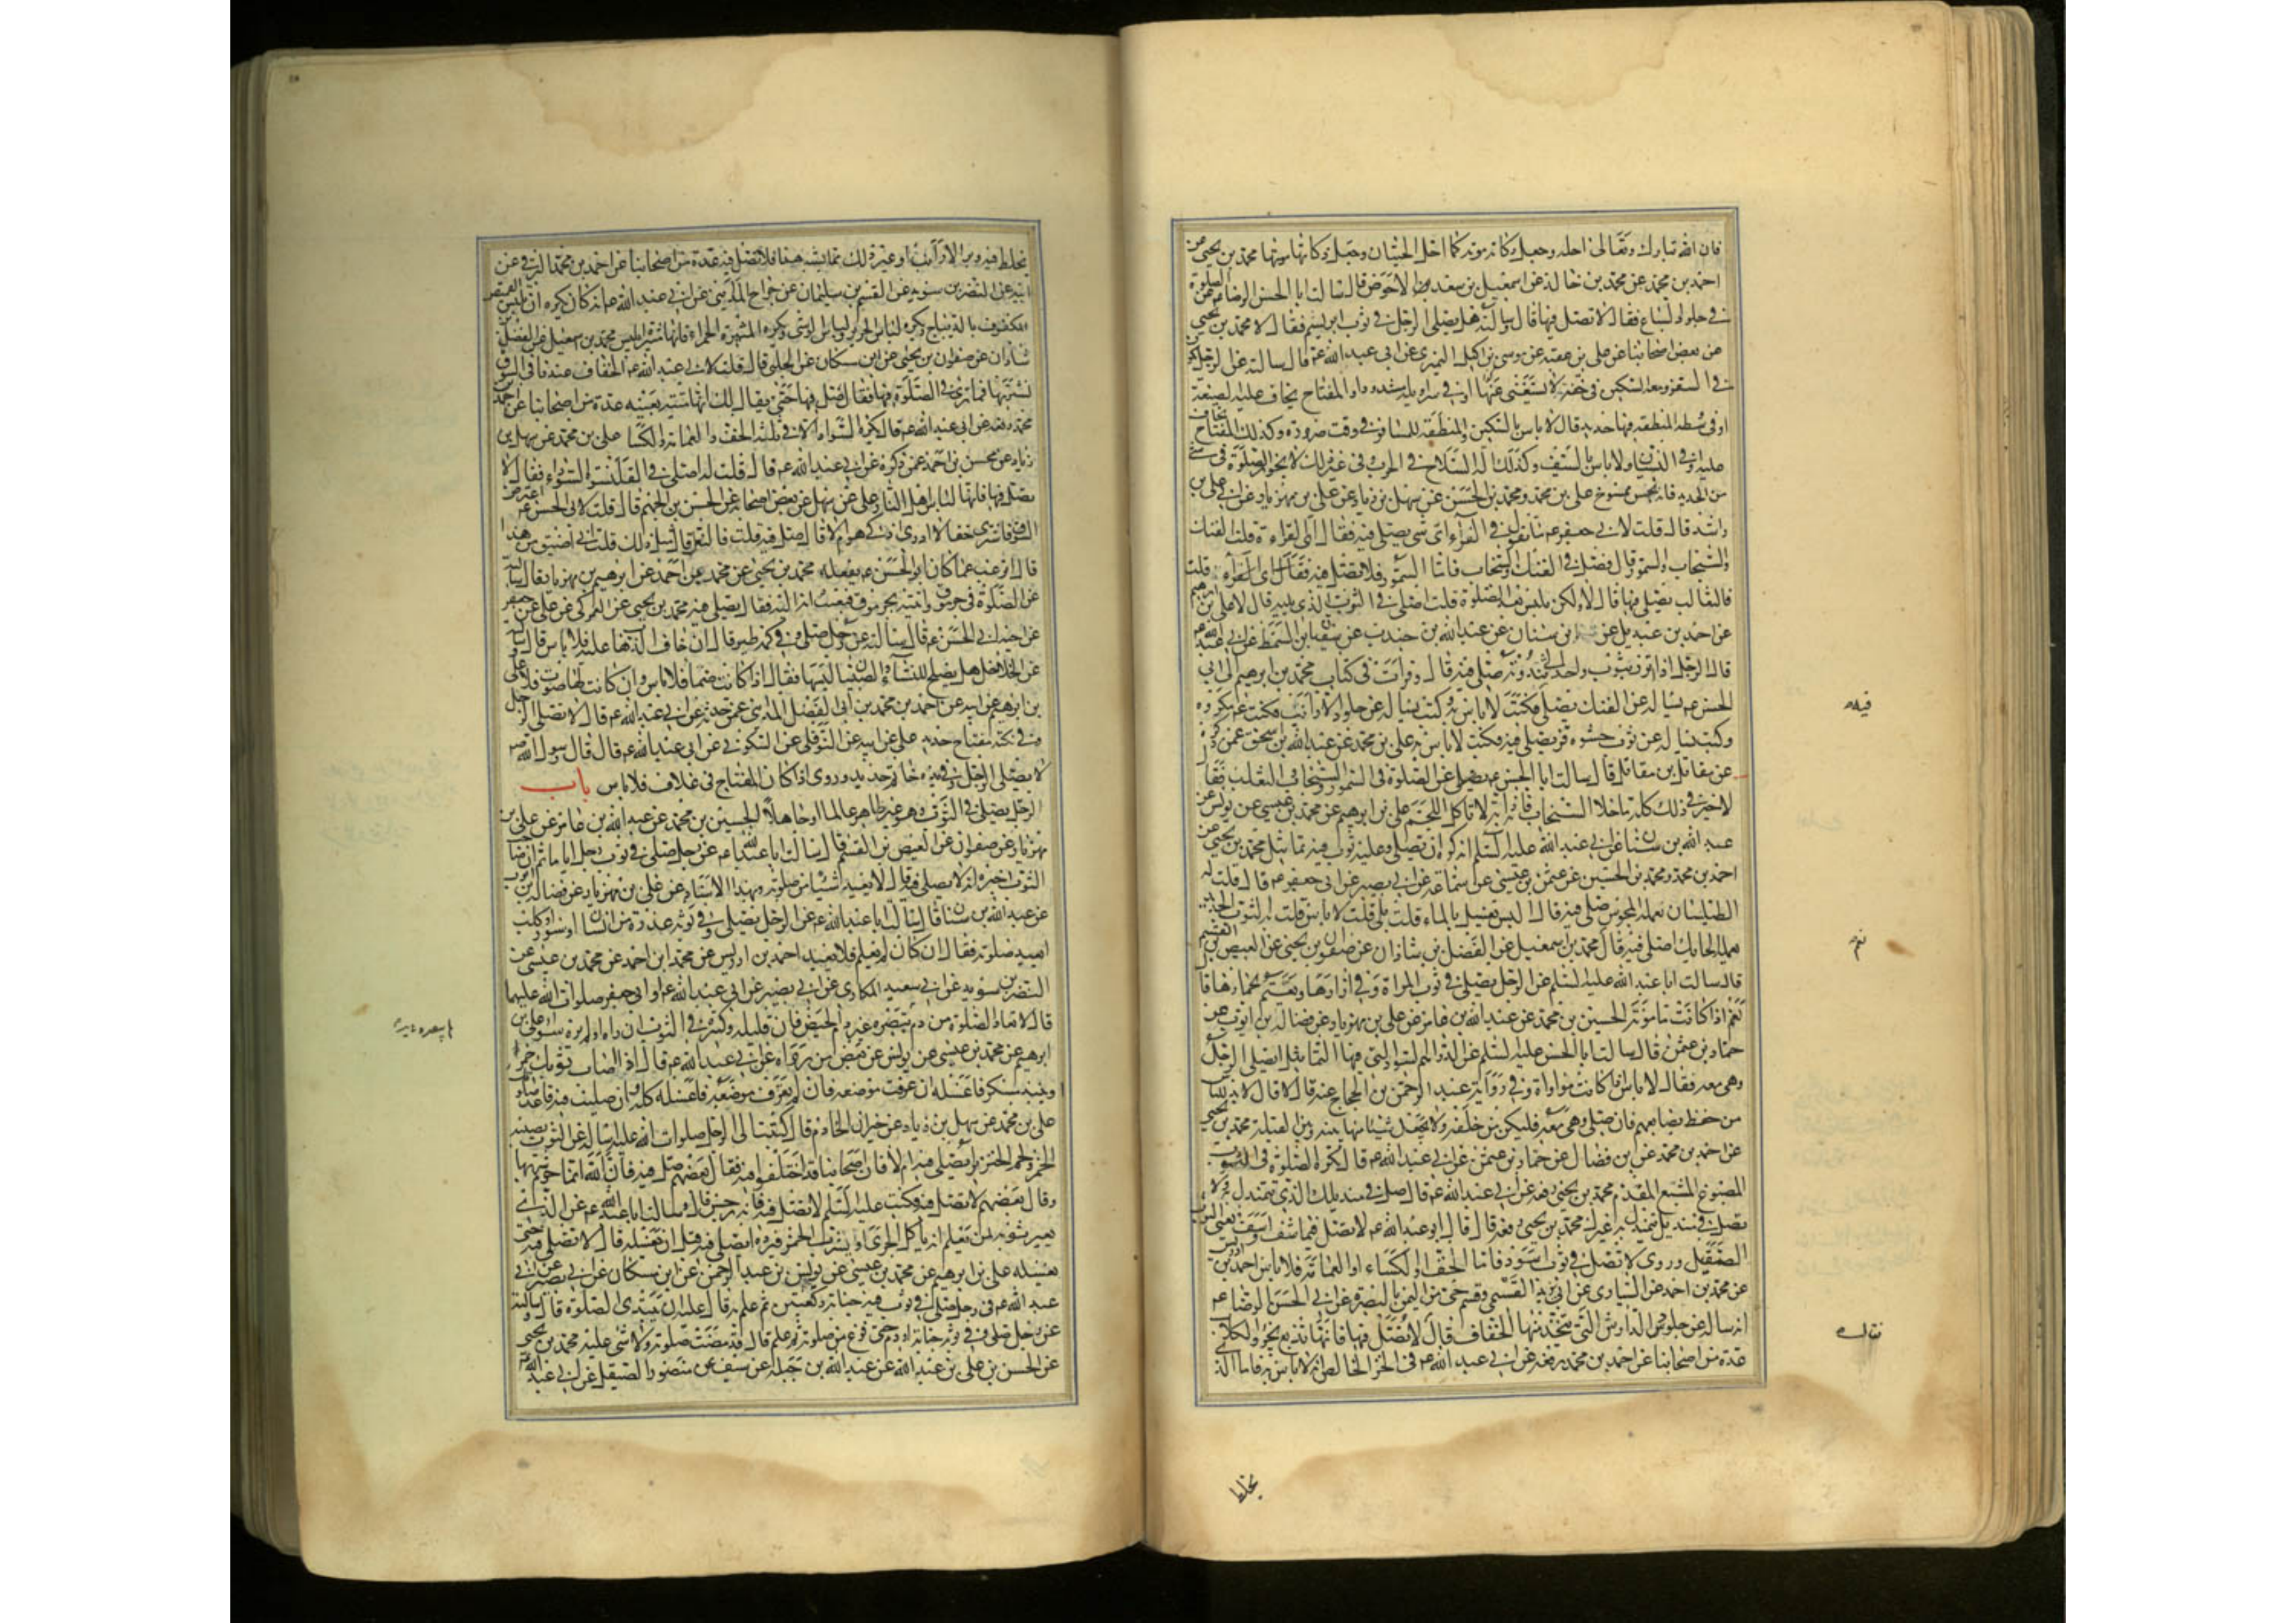 فان الله تبارك وتعالى احله وجعل ذكاته موته كما احل الحيتان وجعل ذكاتها موتها محمد بن يحيى عن
احمد بن محمد عن محمد بن خالد عن اسمعيل بن سعد الاحوص قال سالت ابا الحسن الرضا عن الصلوة
في جلود السباع فقال لا تصل فيها قال وسالته هل يصلى الرجل في ثوب ابريسم فقال لا محمد بن يحيى
عن بعض اصحابنا عن على بن عقبة عن موسى بن اكيل النميرى عن ابى عبد الله عم قال سالته عن الرجل
في السفر ومعه السكين في خفه لا يستغنى عنها او في سراويله مشدودا والمفتاح يخاف عليه الضيعة
او في وسطه المنطقة فيها حديد قال لا باس بالسكين والمنطقة للمسافر في وقت ضرورة وكذلك المفتاح يخاف
عليه او في النسيان ولا باس بالسيف وكذلك آلة السلاح في الحرب وفي غير ذلك لا يجوز الصلوة في شئ
من الحديد فانه نجس ممسوخ على بن محمد ومحمد بن الحسن عن سهل بن زياد عن على بن مهزيار عن ابى على بن
راشد قال قلت لابى جعفر عم ما تقول في الفراء اى شئ يصلى فيه فقال اى الفراء قلت الفنك
والسنجاب والسمور قال فصل في الفنك والسنجاب فاما السمور فلا تصل فيه قلت
فالثعالب نصلى فيها قال لا ولكن تلبس بعد الصلوة قلت اصلى في الثوب الذى يليه قال لا على بن ابرهيم
عن احمد بن عبديل عن ابن سنان عن عبد الله بن جندب عن سفين بن السمط عن ابى عبد الله عم
قال الرجل اذا اتزر بثوب واحد الى ثندوته صلى فيه قال وقرات في كتاب محمد بن ابرهيم الى ابى
الحسن عم يساله عن الفنك يصلى فيه فكتب لا باس به وكتب يساله عن جلود الارانب فكتب عم مكروه
وكتب يساله عن ثوب حشوه قز يصلى فيه فكتب لا باس به على بن محمد عن عبد الله بن اسحق عمن ذكره
عن مقاتل بن مقاتل قال سالت ابا الحسن عم عن الصلوة في السمور والسنجاب والثعلب فقال
لا خير في ذلك كله ما خلا السنجاب فانه دابة لا تاكل اللحم على بن ابرهيم عن محمد بن عيسى عن يونس عن
عبد الله بن سنان عن ابى عبد الله عليه السلم انه كره ان تصلى وعليه ثوب فيه تماثيل محمد بن يحيى عن
احمد بن محمد ومحمد بن الحسين عن عثمن بن عيسى عن سماعة عن ابى بصير عن ابى جعفر عم قال قلت له
الطيلسان يعمله المجوس اصلى فيه قال اليس يغسل بالماء قلت بلى قال لا باس قلت الثوب الجديد
يعمله الحايك اصلى فيه قال نعم محمد بن اسمعيل عن الفضل بن شاذان عن صفوان بن يحيى عن العيص بن القسم
قال سالت ابا عبد الله عليه السلم عن الرجل يصلى في ثوب المراة وفي ازارها ويعتم بخمارها قال
نعم اذا كانت مامونة الحسين بن محمد عن عبد الله بن عامر عن على بن مهزيار عن فضالة بن ايوب عن
حماد بن عثمن قال سالت ابا الحسن عليه السلم عن الدراهم السود التى فيها التماثيل ايصلى الرجل
وهى معه فقال لا باس اذا كانت مواراة وفي رواية عبد الرحمن بن الحجاج عنه قال قال لا بد للناس
من حفظ بضايعهم فان صلى وهى معه فليكن من خلفه ولا يجعل شيئا منها بينه وبين القبلة محمد بن يحيى
عن احمد بن محمد عن ابن فضال عن حماد بن عثمن عن ابى عبد الله عم قال تكره الصلوة في الثوب
المصبوغ المشبع المفدم محمد بن يحيى رفعه عن ابى عبد الله عم قال صل في منديلك الذى تتمندل به ولا
تصل في منديل يتمندل به غيرك محمد بن يحيى رفعه قال قال ابو عبد الله عم لا تصل فيما شف او سف يعنى الثوب
الصقيل وروى لا تصل في ثوب اسود فاما الخف او الكساء او العمامة فلا باس احمد بن ادريس
عن محمد بن احمد عن السيارى عن ابى يزيد القسمى وقسم حى من اليمن بالبصرة عن ابى الحسن الرضا عم
انه ساله عن جلود الدارش التى يتخذ منها الخفاف قال لا تصل فيها فانها تدبغ بخرء الكلاب
عدة من اصحابنا عن احمد بن محمد رفعه عن ابى عبد الله عم في الخز الخالص انه لا باس به فاما الذى
فيه
نعم
يخلط
يخلط فيه وبر الارانب او غير ذلك مما يشبه هذا فلا تصل فيه عدة من اصحابنا عن احمد بن محمد البرقى عن
ابيه عن النضر بن سويد عن القسم بن سليمان عن جراح المداينى عن ابى عبد الله عم انه كان يكره ان يلبس القميص
المكفوف بالديباج ويكره لباس الحرير ولباس الوشى ويكره الميثرة الحمراء فانها ميثرة ابليس محمد بن اسمعيل عن الفضل بن
شاذان عن صفوان بن يحيى عن ابن مسكان عن الحلبى قال قلت لابى عبد الله عم الخفاف عندنا في السوق
نشتريها فما ترى في الصلوة فيها فقال صل فيها حتى يقال لك انها ميتة بعينه عدة من اصحابنا عن احمد بن
محمد رفعه عن ابى عبد الله عم قال يكره السواد الا في ثلثة الخف والعمامة والكسا على بن محمد عن سهل بن
زياد عن محسن بن احمد عمن ذكره عن ابى عبد الله عم قال قلت له اصلى في القلنسوة السوداء فقال لا
تصل فيها فانها لباس اهل النار على عن سهل عن بعض اصحابه عن الحسن بن الجهم قال قلت لابى الحسن عم اعترض
السوق فاشترى خفا لا ادرى اذكى هو ام لا قال صل فيه قلت فالنعل قال مثل ذلك قلت انى اضيق من هذا
قال اترغب عما كان ابو الحسن عم يفعله محمد بن يحيى عن محمد بن احمد عن ابرهيم بن مهزيار قال سالته
عن الصلوة في جرموق واتيته بجرموق فبعثت به اليه فقال يصلى فيه محمد بن يحيى عن العمركى عن على بن جعفر
عن اخيه ابى الحسن عم قال سالته عن رجل صلى وفي كمه طير قال ان خاف الذهاب عليه فلا باس قال وسالته
عن الخلاخل هل يصلح للنساء والصبيان لبسها فقال اذا كانت صما فلا باس وان كانت لها صوت فلا على
بن ابرهيم عن ابيه عن احمد بن محمد بن ابى الفضل المداينى عمن حدثه عن ابى عبد الله عم قال لا تصلى الرجل
وفي تكته مفتاح حديد على عن ابيه عن النوفلى عن السكونى عن ابى عبد الله عم قال قال رسول الله ص
لا يصلى الرجل وفي يده خاتم حديد وروى اذا كان المفتاح في غلاف فلا باس باب
الرجل يصلى في الثوب وهو غير طاهر عالما او جاهلا الحسين بن محمد عن عبد الله بن عامر عن على بن
مهزيار عن صفوان عن العيص بن القسم قال سالت ابا عبد الله عم عن رجل صلى في ثوب رجل اياما ثم ان صاحب
الثوب اخبره انه لا يصلى فيه قال لا يعيد شيئا من صلوته وبهذا الاسناد عن على بن مهزيار عن فضالة بن ايوب
عن عبد الله بن سنان قال سالت ابا عبد الله عم عن الرجل يصلى وفي ثوبه عذرة من انسان او سنور او كلب
ايعيد صلوته فقال ان كان لم يعلم فلا يعيد احمد بن ادريس عن محمد ابن احمد عن محمد بن عيسى عن
النضر بن سويد عن ابى سعيد المكارى عن ابى بصير عن ابى عبد الله عم او ابى جعفر صلوات الله عليهما
قال لا تعاد الصلوة من دم تبصره غير دم الحيض فان قليله وكثيره في الثوب ان راه او لم يره سواء على بن
ابرهيم عن محمد بن عيسى عن يونس عن بعض من رواه عن ابى عبد الله عم قال اذا اصاب ثوبك خمر
او نبيذ مسكر فاغسله ان عرفت موضعه فان لم تعرف موضعه فاغسله كله وان صليت فيه فاعد صلوتك
على بن محمد عن سهل بن زياد عن خيران الخادم قال كتبت الى الرجل صلوات الله عليه اساله عن الثوب يصيبه
الخمر ولحم الخنزير ايصلى فيه ام لا فان اصحابنا قد اختلفوا فيه فقال بعضهم صل فيه فان الله انما حرم شربها
وقال بعضهم لا تصل فيه فكتب عليه السلم لا تصل فيه فانه رجس قال وسالت ابا عبد الله عم عن الذى
يعير ثوبه لمن يعلم انه ياكل الجرى او يشرب الخمر فيرده ايصلى فيه قبل ان يغسله قال لا تصلى فيه حتى
يغسله على بن ابرهيم عن محمد بن عيسى عن يونس بن عبد الرحمن عن ابن مسكان عن ابى بصير عن ابى
عبد الله عم في رجل صلى في ثوب فيه جنابة ركعتين ثم علم به قال عليه ان يبتدى الصلوة قال وسالته
عن رجل صلى وفي ثوبه جنابة او دم حتى فرغ من صلوته ثم علم قال قد مضت صلوته ولا شئ عليه محمد بن يحيى
عن الحسن بن على بن عبد الله عن عبد الله بن جبلة عن سيف عن منصور الصيقل عن ابى عبد الله عم